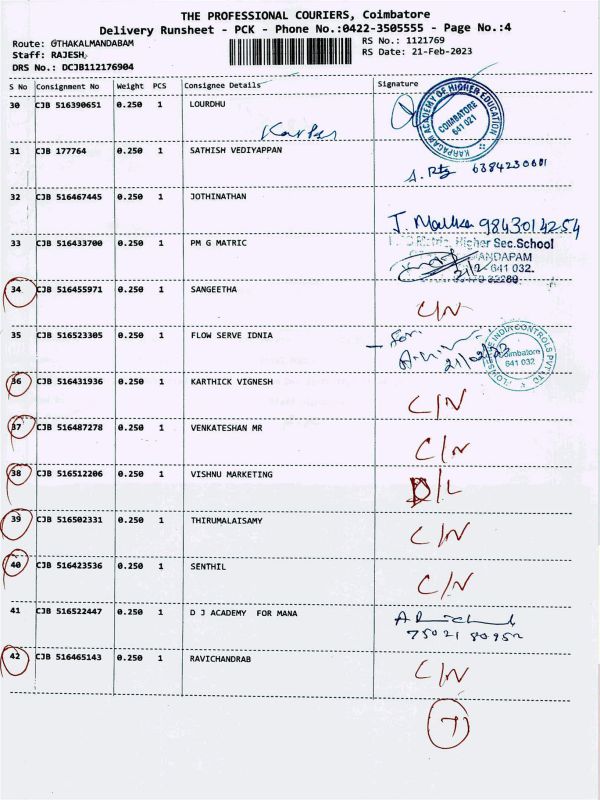 THE PROFESSIONAL COURIERS, Coimbatore
Delivery Runsheet - PCK - Phone No.:0422-3505555 - Page No.:4
Route: @THAKALMANDABAM RS No.: 1121769
Staff: RAJESH RS Date: 21-Feb-2023
DRS No.: DCJB112176904
S No Consignment No Weight PCS Consignee Details Signature
30 CJB 516390651 0.250 1 LOURDHU
KARPAGAM ACADEMY OF HIGHER EDUCATION
COIMBATORE
641 021
31 CJB 177764 0.250 1 SATHISH VEDIYAPPAN
6384230601
32 CJB 516467445 0.250 1 JOTHINATHAN
9843014254
33 CJB 516433700 0.250 1 PM G MATRIC
Matric. Higher Sec.School
641 032.
34 CJB 516455971 0.250 1 SANGEETHA C/N
35 CJB 516523305 0.250 1 FLOW SERVE IDNIA
For
21/02/23
Coimbatore
641 032
36 CJB 516431936 0.250 1 KARTHICK VIGNESH C/N
37 CJB 516487278 0.250 1 VENKATESHAN MR C/N
38 CJB 516512206 0.250 1 VISHNU MARKETING D/L
39 CJB 516502331 0.250 1 THIRUMALAISAMY C/N
40 CJB 516423536 0.250 1 SENTHIL C/N
41 CJB 516522447 0.250 1 D J ACADEMY FOR MANA
42 CJB 516465143 0.250 1 RAVICHANDRAB C/N
7